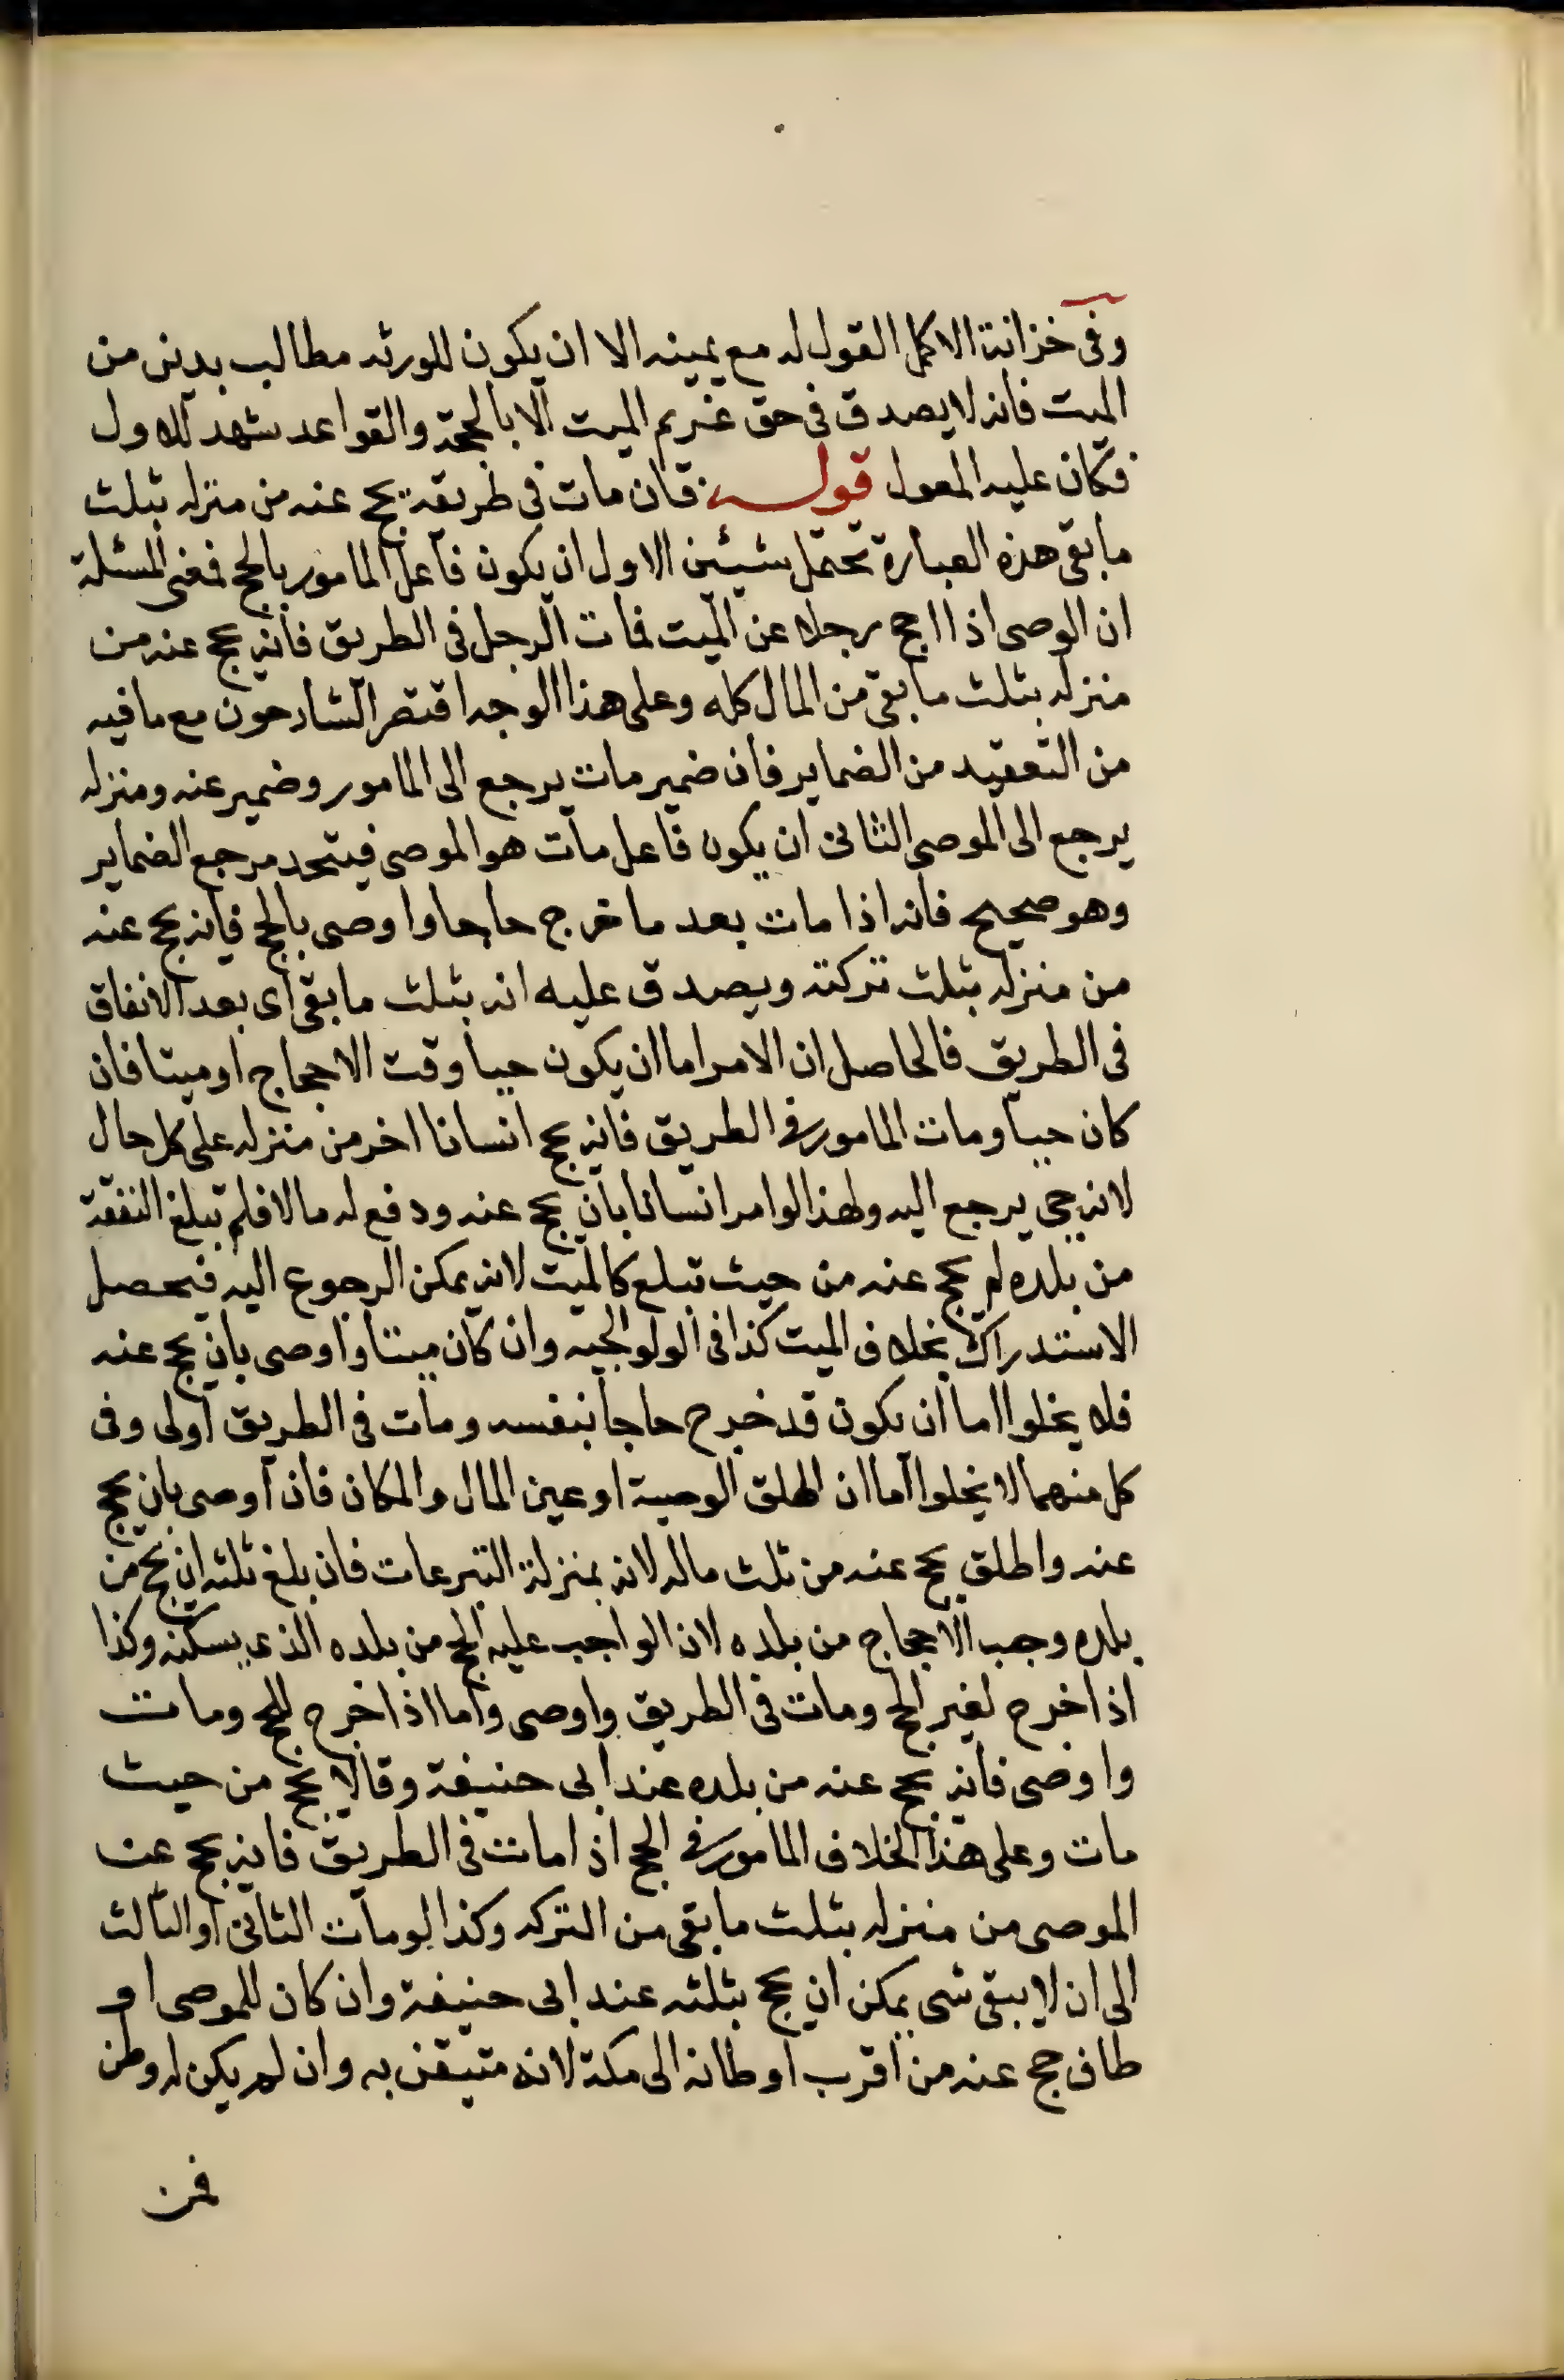 وفى خزانة الاكمل القول له مع يمينه الا ان يكون للورثه مطالب بدين من
الميت فانه لا يصدق فى حق غريم الميت الا بالحجة والقواعد تشهد للاول
فكان عليه المعول قوله فان مات فى طريقه يحج عنه من منزله بثلث
ما بقى هذه العبارة تحتمل شيئين الاول ان يكون فاعل المامور بالحج فمعنى المسئلة
ان الوصى اذا احج رجلا عن الميت فمات الرجل فى الطريق فانه يحج عنه من
منزله بثلث ما بقى من المال كله وعلى هذا الوجه اقتصر الشارحون مع ما فيه
من التعقيد من الضماير فان ضمير مات يرجع الى المامور وضمير عنه ومنزله
يرجع الى الموصى الثانى ان يكون فاعل مات هو الموصى فيتحد مرجع الضماير
وهو صحيح فانه اذا مات بعد ما خرج حاجا واوصى بالحج فانه يحج عنه
من منزله بثلث تركته ويصدق عليه انه بثلث ما بقى اى بعد الانفاق
فى الطريق فالحاصل ان الامر اما ان يكون حيا وقت الاحجاج او ميتا فان
كان حيا ومات المامور فى الطريق فانه يحج انسانا اخر من منزله على كل حال
لانه حى يرجع اليه ولهذا لو امر انسانا بان يحج عنه ودفع له مالا فلم تبلغ النفقة
من بلده لم يحج عنه من حيث تبلغ كالميت لانه يمكن الرجوع اليه فيحصل
الاستدراك بخلاف الميت كذا فى الولوالجيه وان كان ميتا واوصى بان يحج عنه
فلا يخلوا اما ان يكون قد خرج حاجا بنفسه ومات فى الطريق اولى وفى
كل منهما لا يخلوا اما ان اطلق الوصية او عين المال والمكان فان اوصى بان يحج
عنه واطلق يحج عنه من ثلث ماله لانه بمنزلة التبرعات فان بلغ ثلثه ان يحج من
بلده وجب الاحجاج من بلده لان الواجب عليه الحج من بلده الذى يسكنه وكذا
اذا خرج لغير الحج ومات فى الطريق واوصى واما اذا خرج للحج ومات
واوصى فانه يحج عنه من بلده عند ابى حنيفة وقالا يحج من حيث
مات وعلى هذا الخلاف المامور فى الحج اذا مات فى الطريق فانه يحج عن
الموصى من منزله بثلث ما بقى من التركه وكذا لو مات الثانى او الثالث
الى ان لا يبقى شى يمكن ان يحج بثلثه عند ابى حنيفة وان كان للموصى او
طان حج عنه من اقرب اوطانه الى مكة لانه متيقن به وان لم يكن له وطن
فمن